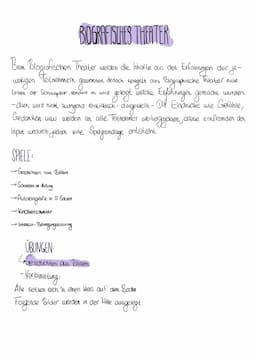 BIOGRAFISCHES THEATER
Beim Biografischen Theater werden die Inhalte aus den Erfahrungen der je-
weiligen Teilnehmern gewonnen. Jedoch spiegelt das Biographische Theater nicht
Leben der Schauspieler, sondern es wird gezeigt welche Erfahrungen gemacht wurden
- dies wird nicht dargestellt - Die Eindrücke wie Gefühle,
Gedanken usw werden an alle Teilnehmer weitergegeben, ohne
dass eine Spielgrundlage entsteht.
SPIELE:
→ Geschichten aus Bildern
→ Autobiografie in 5
→ Kinderzimmer
→ Intensiv-Bewegungstraining
ÜBUNGEN:
Geschichten aus Bildern
- Vorbereitung:
Alle setzen sich in einen Kreis auf den Boden
Folgende Bilder werden in der Mitte ausgelegt